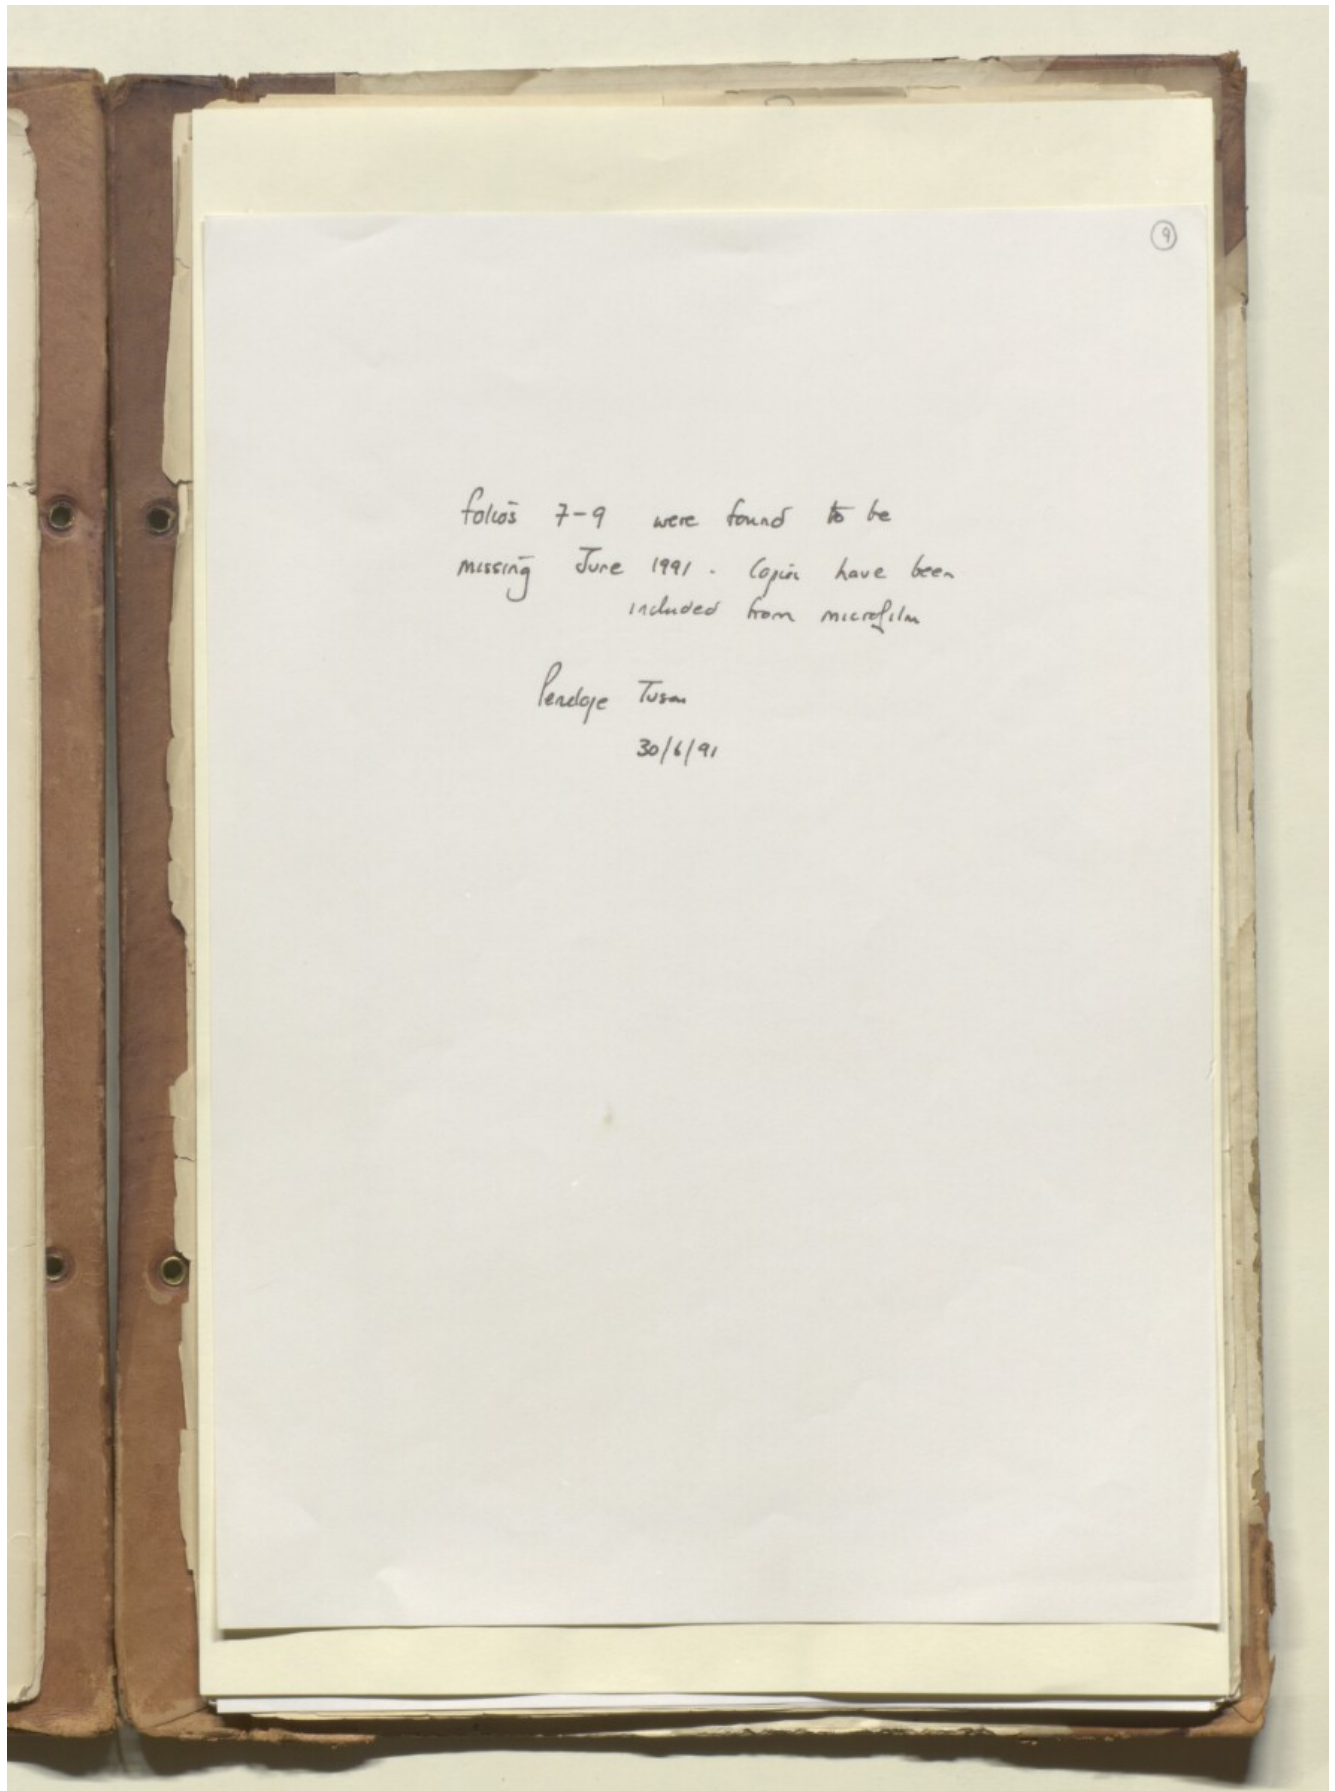 9
folios 7-9 were found to be
missing June 1991. Copies have been
included from microfilm
Penelope Tuson
30/6/91